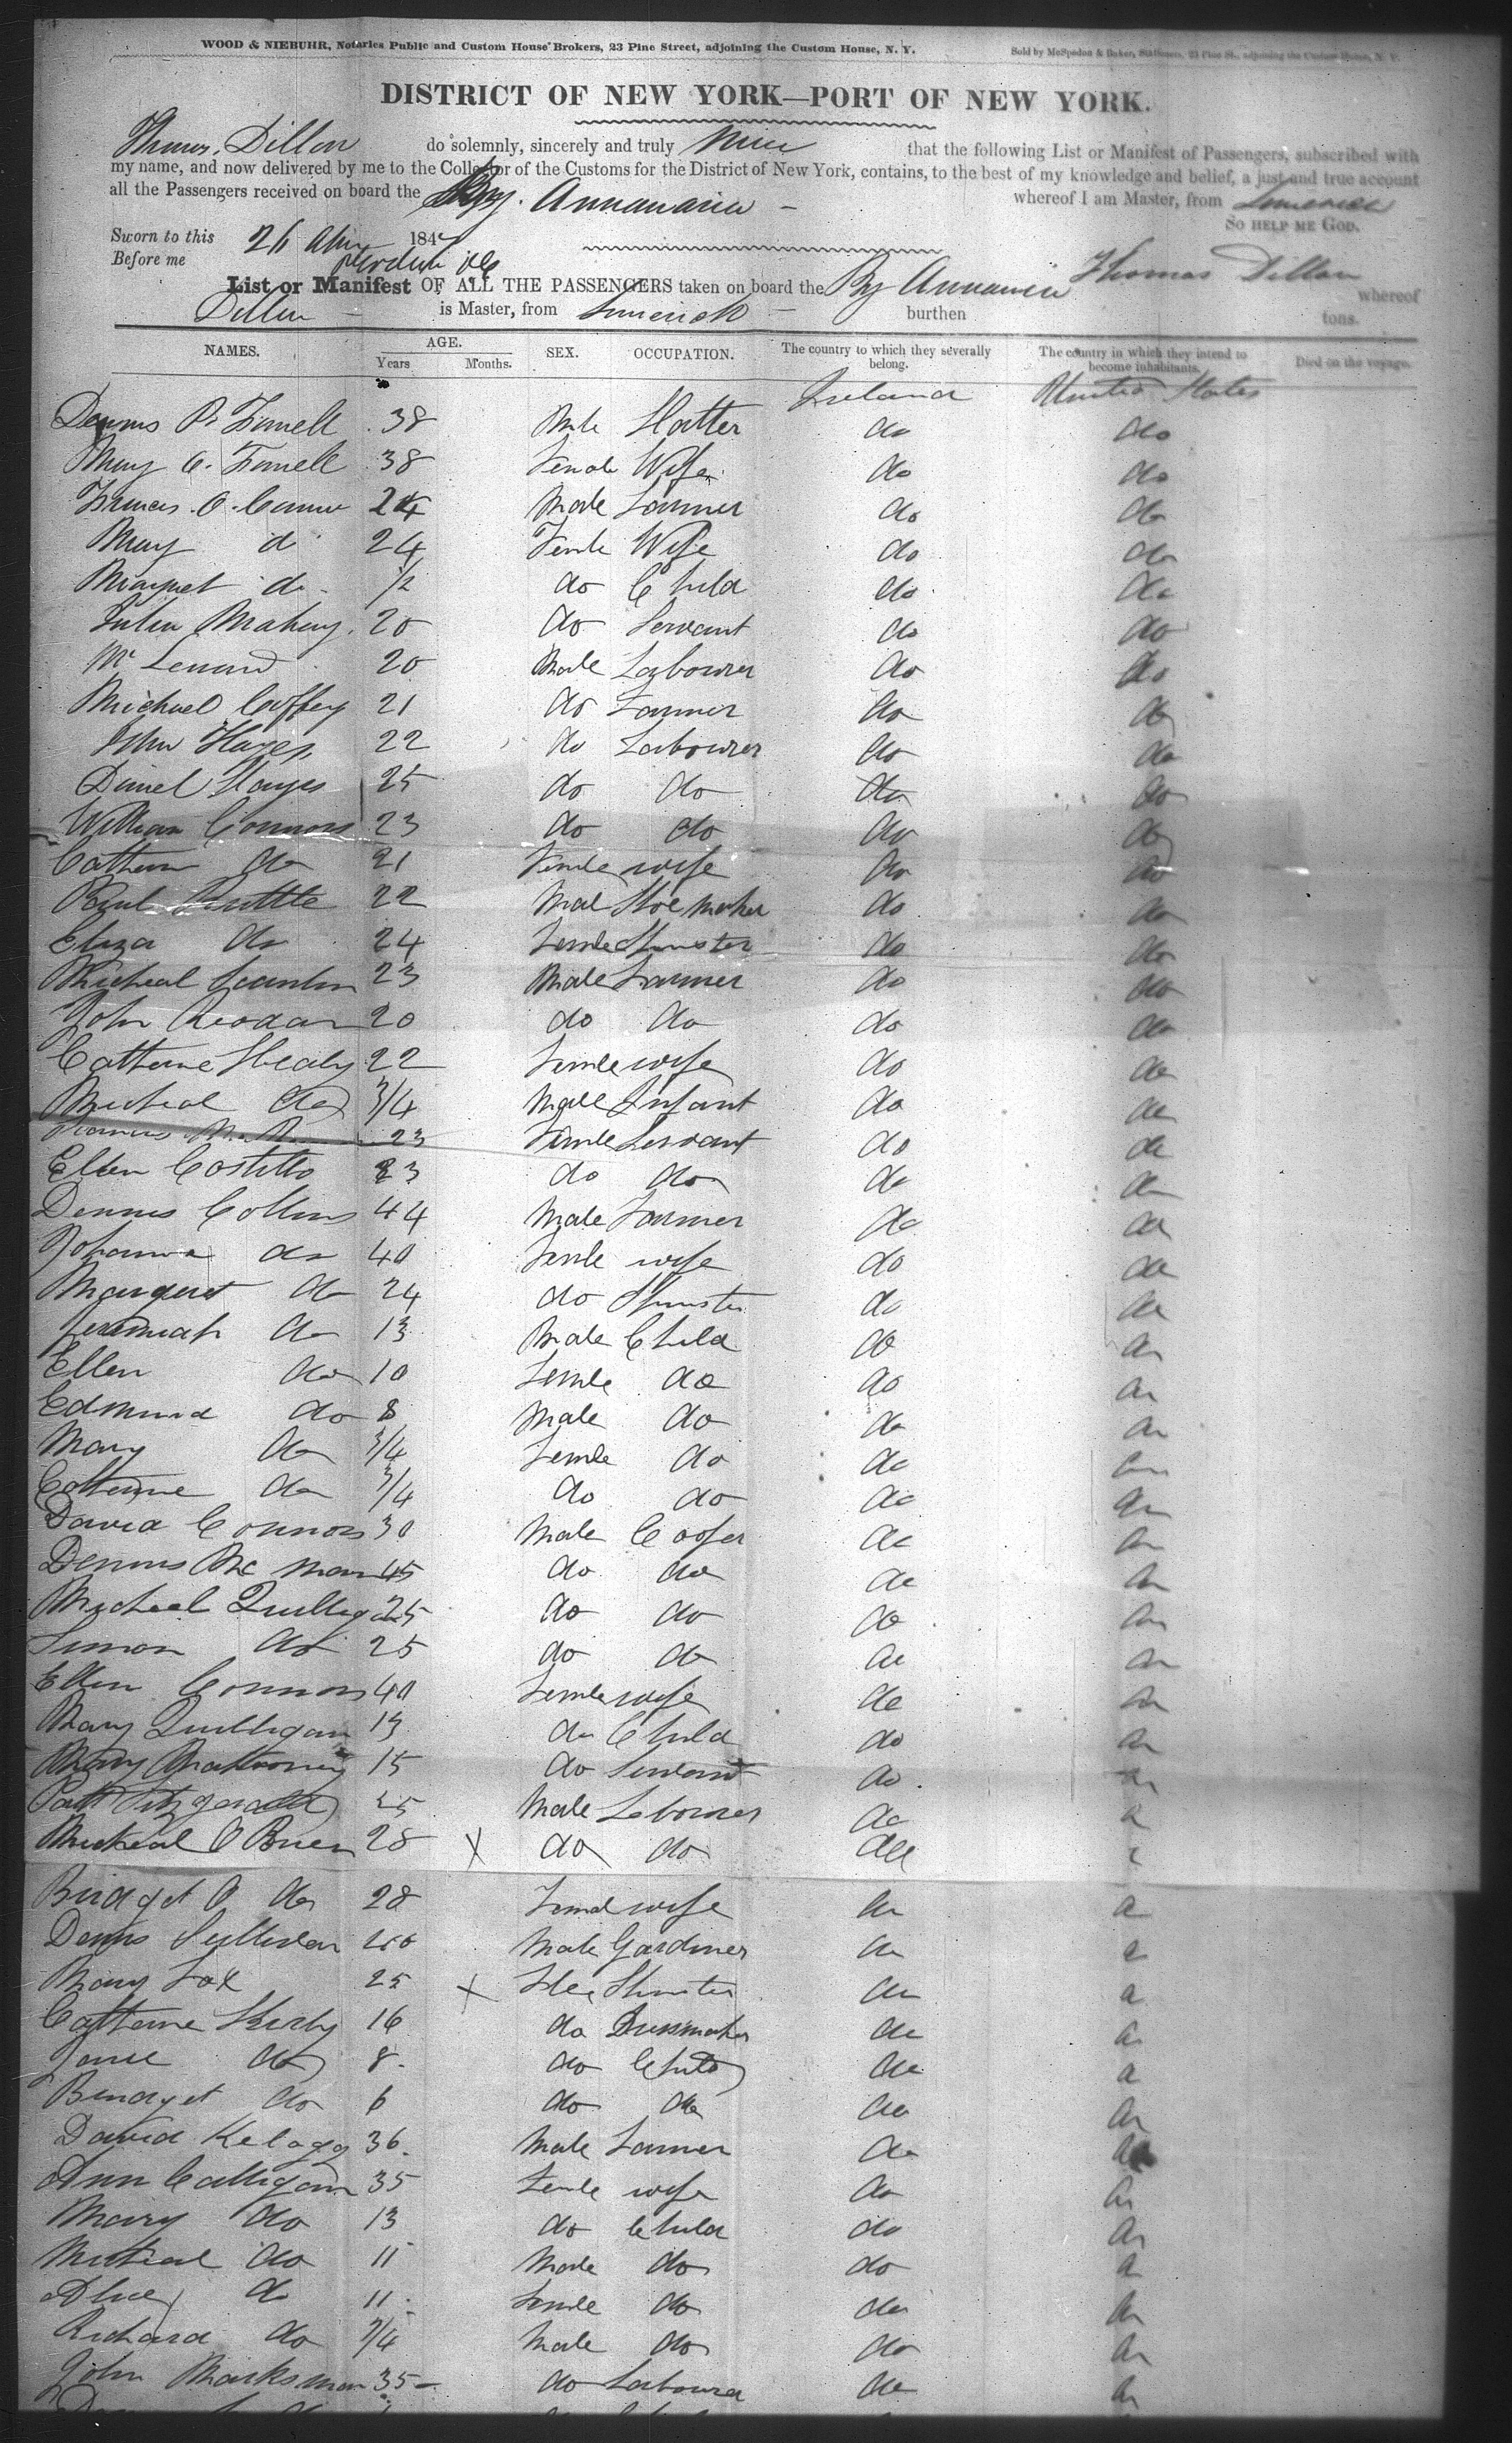 WOOD & NIEBUHR, Notaries Public and Custom House Brokers, 23 Pine Street, adjoining the Custom House, N. Y. Sold by McSpedon & Baker, Stationers, 23 Pine St., adjoining the Custom House, N. Y.
DISTRICT OF NEW YORK—PORT OF NEW YORK.
Thomas Dillon do solemnly, sincerely and truly that the following List or Manifest of Passengers, subscribed with
my name, and now delivered by me to the Collector of the Customs for the District of New York, contains, to the best of my knowledge and belief, a just and true account
all the Passengers received on board the whereof I am Master, from Limerick
SO HELP ME GOD.
Sworn to this 26 184
Before me
Thomas Dillon
List or Manifest OF ALL THE PASSENGERS taken on board the whereof
Dillon is Master, from Limerick burthen tons.
NAMES. AGE. Years Months. SEX. OCCUPATION. The country to which they severally belong. The country in which they intend to become inhabitants. Died on the voyage.
Ireland United States
Dennis 38 Male Hatter do do
Mary 38 Female Wife do do
Frances O. 24 Male Farmer do do
Mary do 24 Femle Wife do do
Margret do 1/2 do Child do do
Mahony 20 do Servant do do
20 Male Labourer do do
Michael Coffey 21 do Farmer do do
John Hayes 22 do Labourer do do
Daniel Hayes 25 do do do do
William Connors 23 do do do do
Cathern do 21 Femle wife do do
22 Male Shoe maker do do
Eliza do 24 Femle Spinster do do
Micheal Scanlon 23 Male Farmer do do
John Reodan 20 do do do do
Catherne Shealy 22 Femle wife do do
Micheal do 3/4 Male Infant do do
23 Femle Servant do do
Ellen Costillo 23 do do do do
Dennis Collins 44 Male Farmer do do
Johanna do 40 Femle wife do do
Margaret do 24 do Spinster do do
Jeremiah do 13 Male Child do do
Ellen do 10 Femle do do do
Edmund do 8 Male do do do
Mary do 3/4 Femle do do do
Catherine do 3/4 do do do do
David Connors 30 Male Cooper do do
Dennis Mc 45 do do do do
Micheal Quilligan 25 do do do do
Simon do 25 do do do do
Ellen Connors 40 Femle wife do do
Mary Quilligan 13 do Child do do
Mary Mahoney 15 do Servant do do
Patt Fitzgerald 25 Male Labourer do do
Micheal O Brien 28 X do do do
Bridget O do 28 Femal wife do do
Dennis Sullivan Male Gardiner do do
Mary Fox 25 X Spinster do do
Catherne Kirby 16 do Dressmaker do do
Jane do 8 do Child do do
Bridget do 6 do do do do
David Kelogg 36 Male Farmer do do
Ann Calligan 35 Femle wife do do
Mary do 13 do Child do do
Micheal do 11 Male do do do
do 11 Femle do do do
Richard do 3/4 Male do do do
John Marksman 35 do Labourer do do